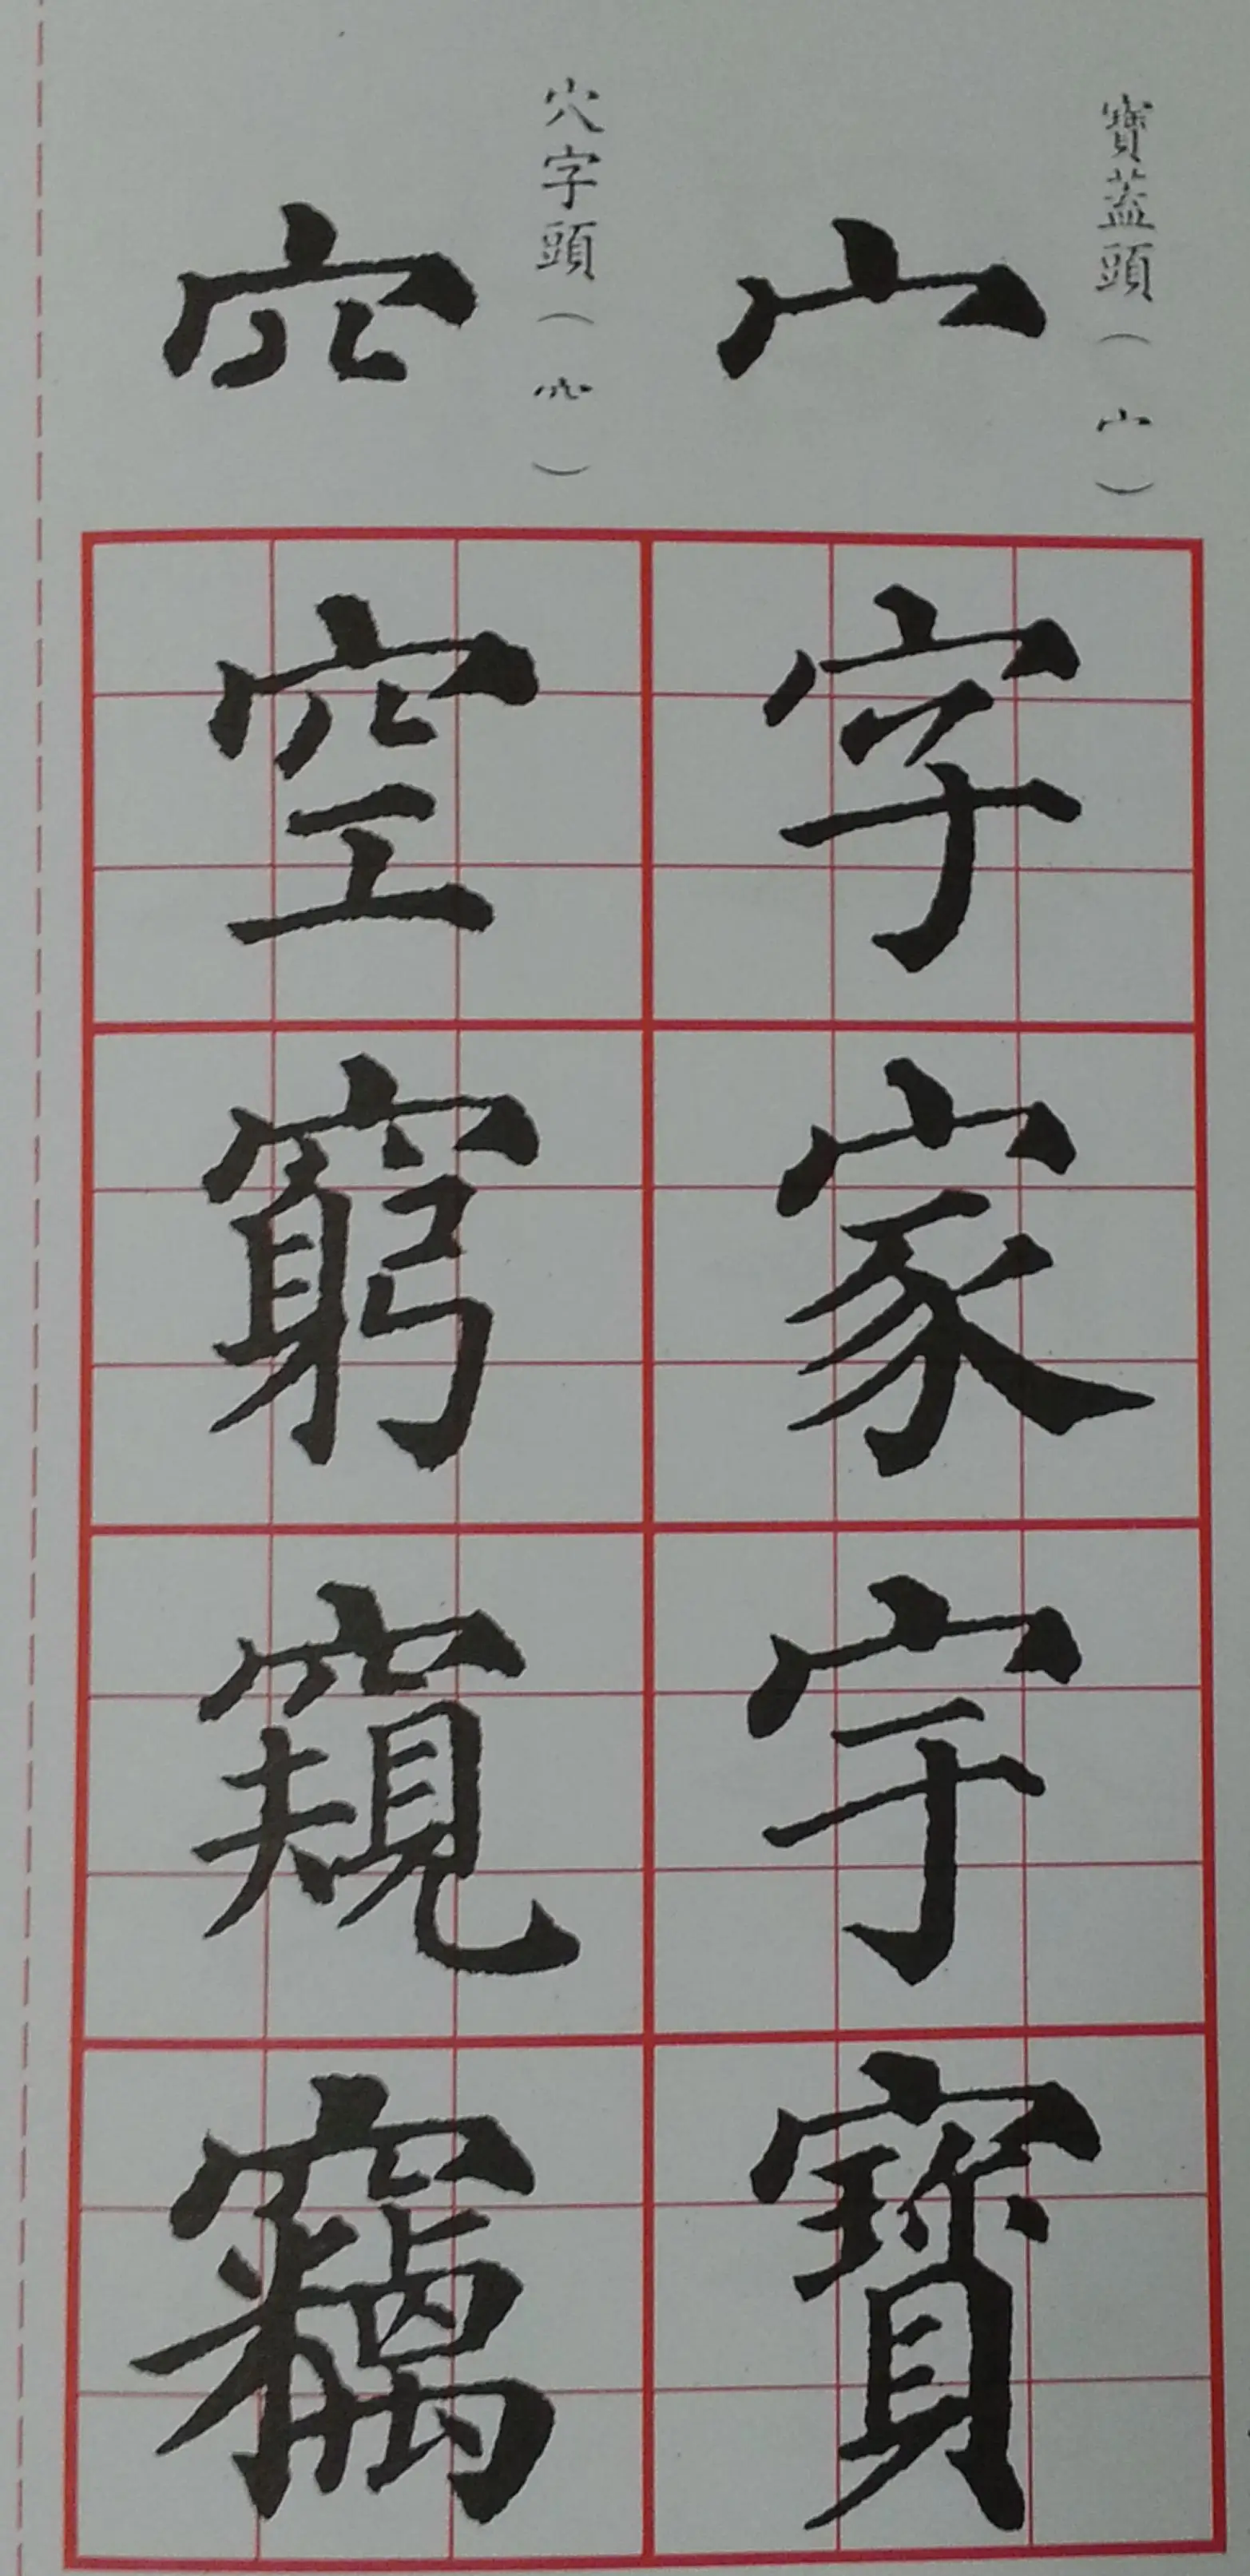 寶蓋頭（宀）
宀
字
家
宇
寳
穴字頭（穴）
穴
空
窮
窺
竊